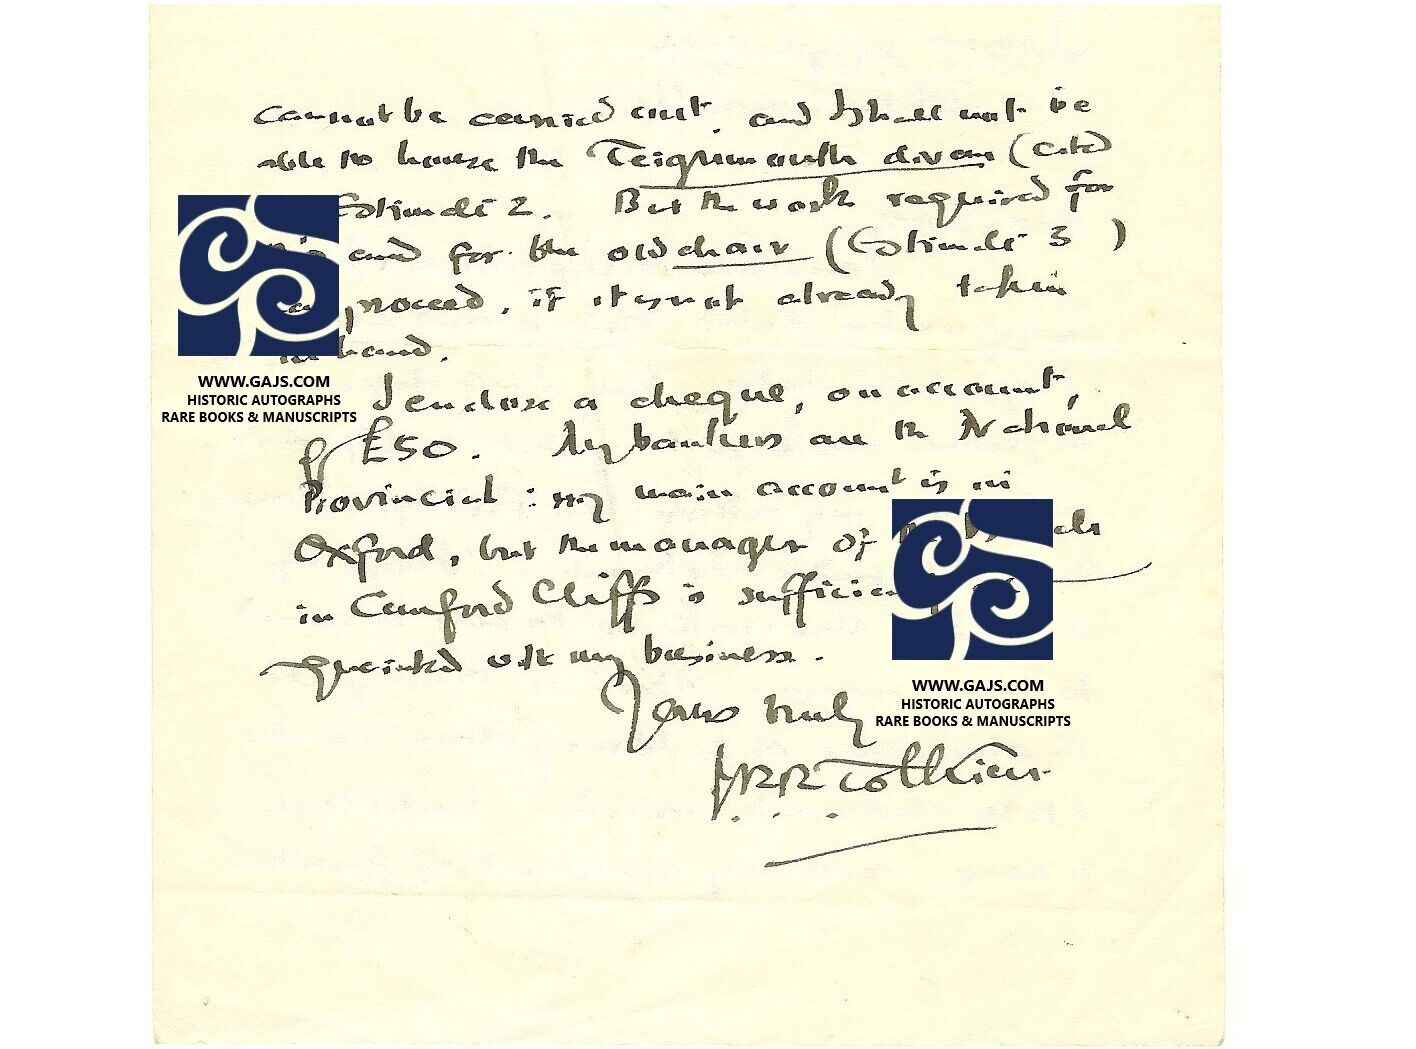 cannot be carried out, and I shall not be
able to house the Teignmouth divan (cited
Estimate 2. But the work required for
this and for the old chair (Estimate 3)
can proceed, if it is not already taken
in hand.
I enclose a cheque, on account,
of £50. My bankers are the National
Provincial: my main account is in
Oxford, but the manager of
in Canford Cliffs is sufficiently
acquainted with my business.
Yours truly
JRR Tolkien
WWW.GAJS.COM
HISTORIC AUTOGRAPHS
RARE BOOKS & MANUSCRIPTS
WWW.GAJS.COM
HISTORIC AUTOGRAPHS
RARE BOOKS & MANUSCRIPTS